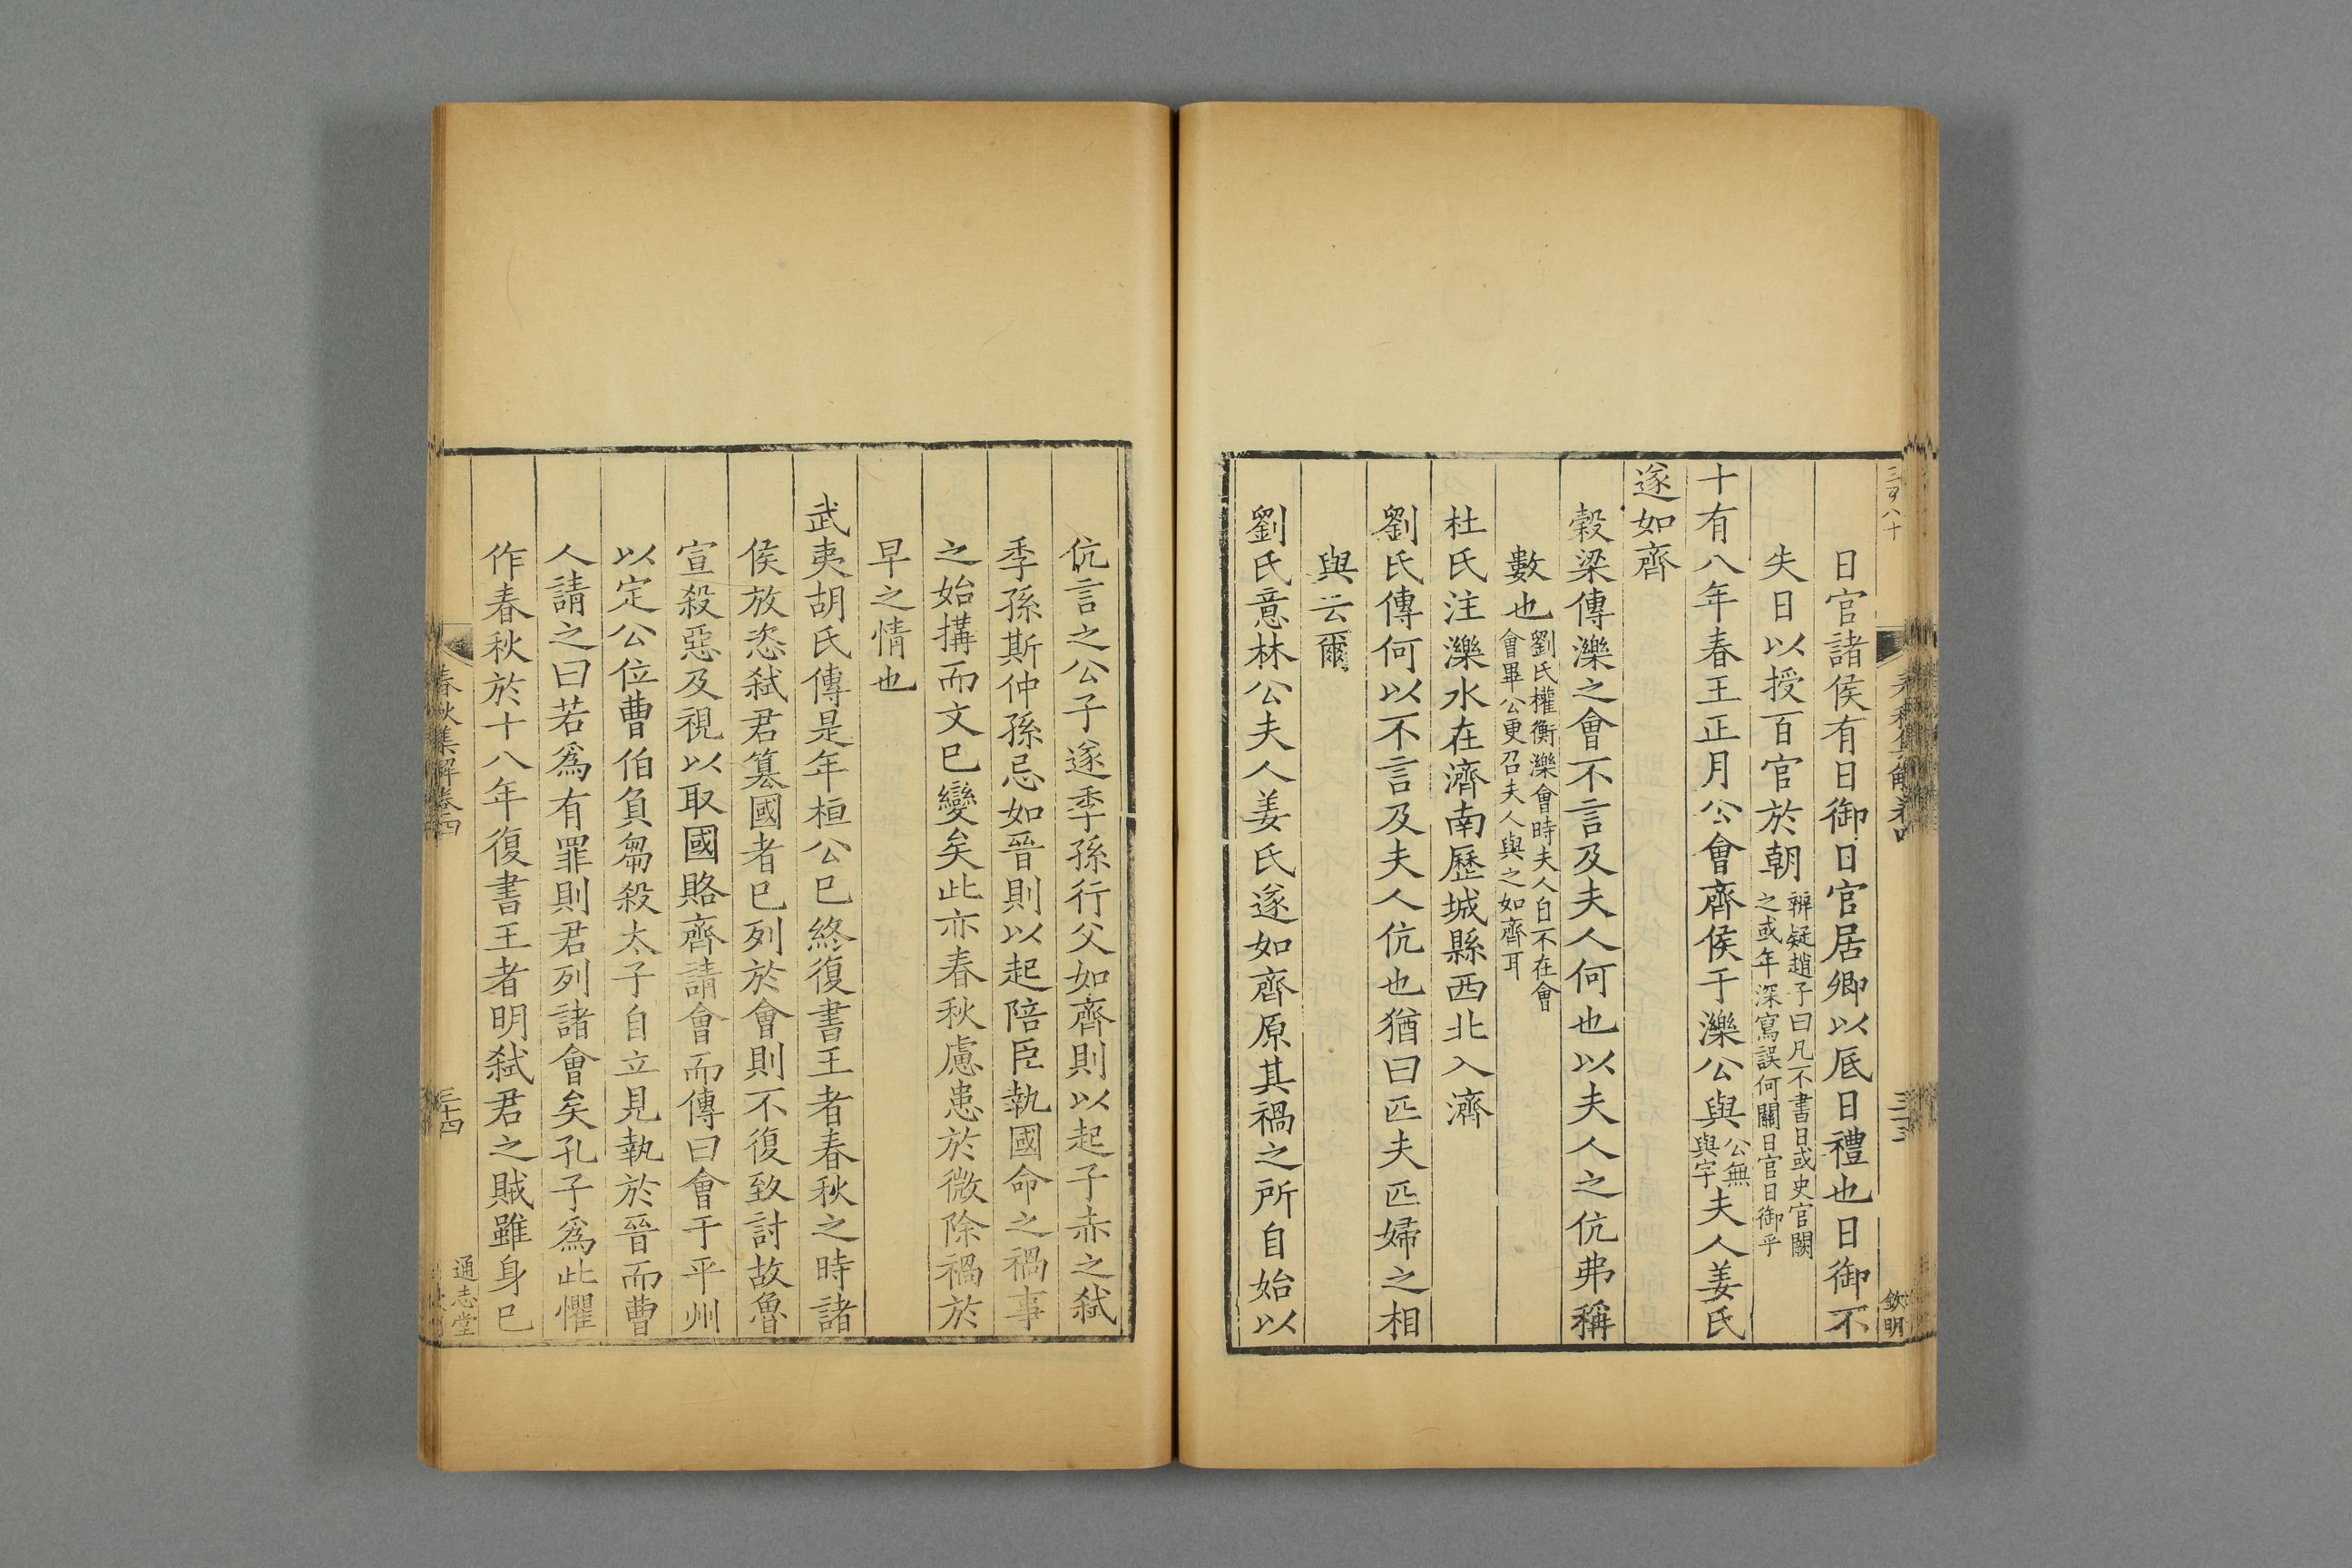 日官諸侯有日御日官居卿以厎日禮也日御不
失日以授百官於朝辨疑趙子曰凡不書日或史官闕之或年深寫誤何關日官日御乎
十有八年春王正月公會齊侯于濼公與公無與字夫人姜氏
遂如齊
穀梁傳濼之會不言及夫人何也以夫人之伉弗稱
數也劉氏權衡濼會時夫人自不在會會畢公更召夫人與之如齊耳
杜氏注濼水在濟南歷城縣西北入濟
劉氏傳何以不言及夫人伉也猶曰匹夫匹婦之相
與云爾
劉氏意林公夫人姜氏遂如齊原其禍之所自始以
欽明
伉言之公子遂季孫行父如齊則以起子赤之弑
季孫斯仲孫忌如晉則以起陪臣執國命之禍事
之始搆而文巳變矣此亦春秋慮患於微除禍於
早之情也
武夷胡氏傳是年桓公巳終復書王者春秋之時諸
侯放恣弑君篡國者巳列於會則不復致討故魯
宣殺惡及視以取國賂齊請會而傳曰會于平州
以定公位曹伯負芻殺太子自立見執於晉而曹
人請之曰若爲有罪則君列諸會矣孔子爲此懼
作春秋於十八年復書王者明弑君之賊雖身巳
春秋集解卷四
三十四
通志堂